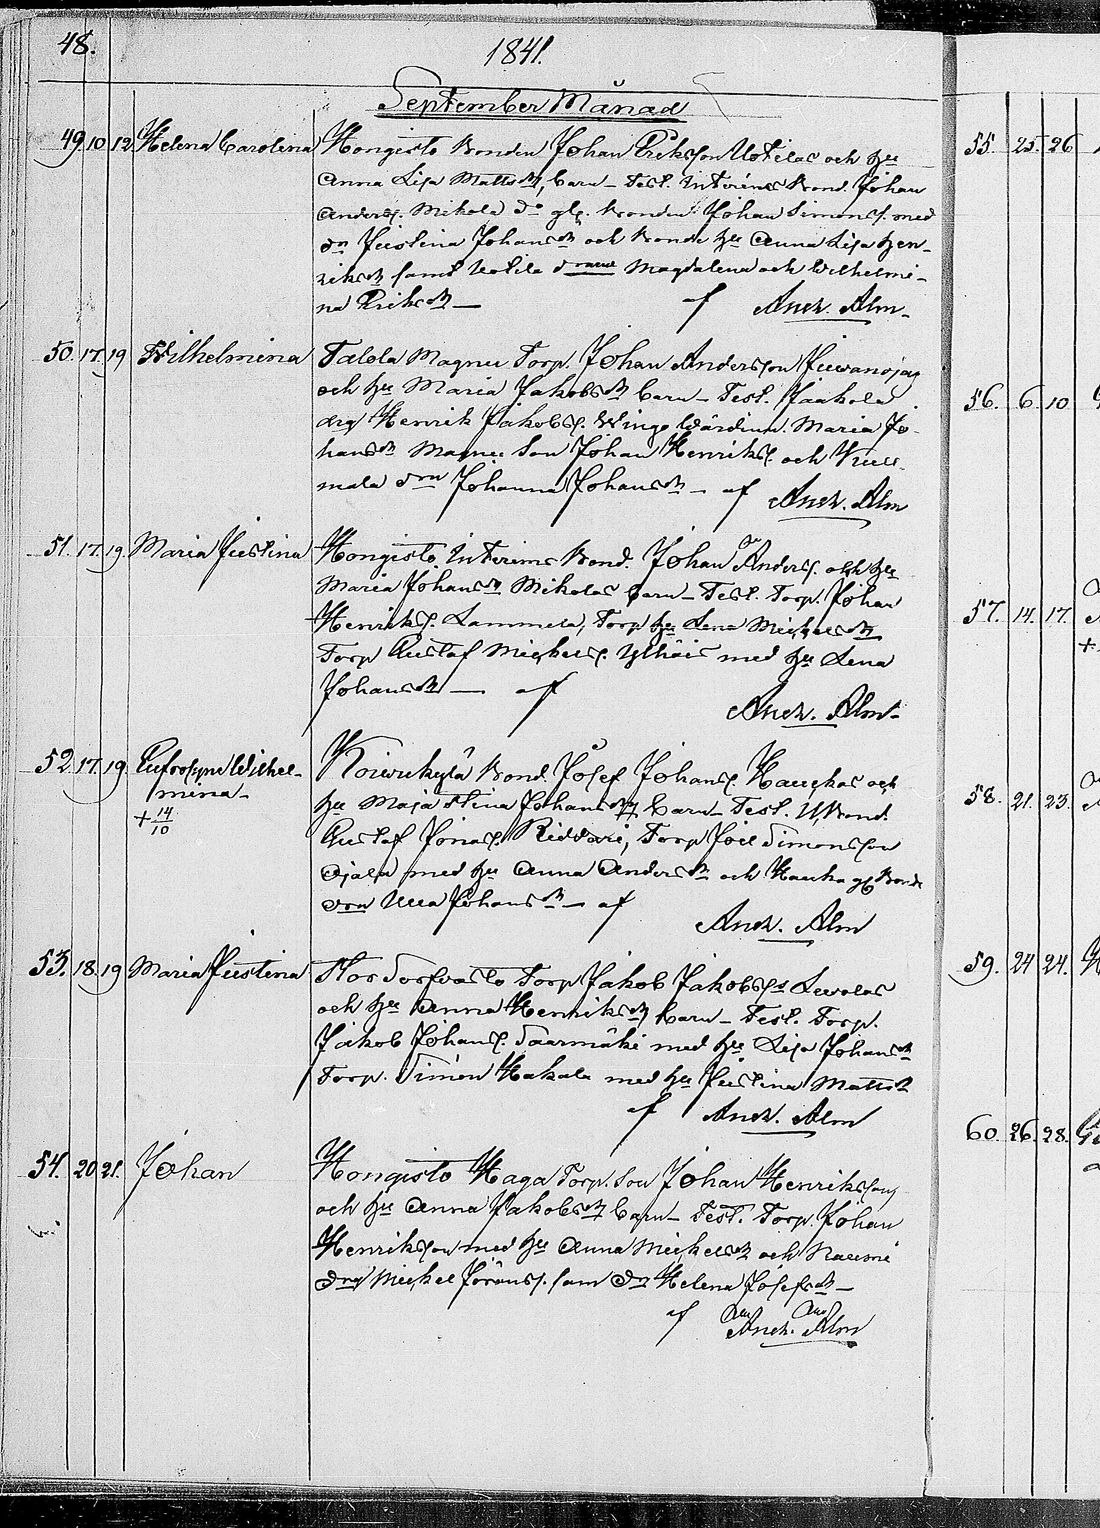 48.
1841.
September Månad
49. 10. 12. Helena Carolina Hongisto Bonden Johan Eriksson Uotilas och hu
Anna Lisa Mattsdr, barn – Test. Interims Bond. Johan
Anders. Mikola do gl. Bonden Johan Simons. med
dn Justina Johansdr och Bonde hu Anna Lisa Hen-
riksdr samt Uotila Magdalena och Wilhelmi-
na Eriksdr — af Andr. Alm.
50. 17. 19 Wilhelmina Torp. Johan Andersson
och hu Maria Jakobsdr barn – Test. Jaakola
drg Henrik Jakobs. Maria Jo-
hansdr Son Johan Henriks. och
mala Johanna Johansdr – af Andr. Alm
51. 17. 19. Maria Justina Hongisto Interims Bond. Johan Anders. och hu
Maria Johansdr Mikolas barn – Test. Torp. Johan
Henriks. Lammela, Torp hu Lena Michelsdr
Torp Gustaf Michels. med hu Lena
Johansdr — af
Andr. Alm.
52. 17. 19. Eufrosyne Wilhel-
mina –
+ 14/10
Koivukylä Bond. Josef Johans. Hauchas och
hu Maja Stina Johansdr barn – Test. Bond.
Gustaf Jonas. Riddari, Torp Joel Simonsson
Ojala med hu Anna Andersdr och Hauka gl Bonde
Ulla Johansdr – af
Andr. Alm
53. 18. 19 Maria Justina Torp Jakob Jakobs.
och hu Anna Henriksdr barn – Test. Torp.
Jakob Johans. Saarmäki med hu Lisa Johansdr
Torp. Simon Hakala med hu Justina Mattsdr
af Andr. Alm
54. 20. 21. Johan Hongisto Haga Torp. Son Johan Henriksson
och hu Anna Jakobsdr barn – Test. Torp. Johan
Henriksson med hu Anna Michelsdr och Raumi
drg Michel Jörans. sam dn Helena Josefsdr –
af Andr. Alm
55. 25. 26
56. 6. 10
57. 14. 17.
+
58. 21. 23.
59. 24 24.
60. 26. 28.